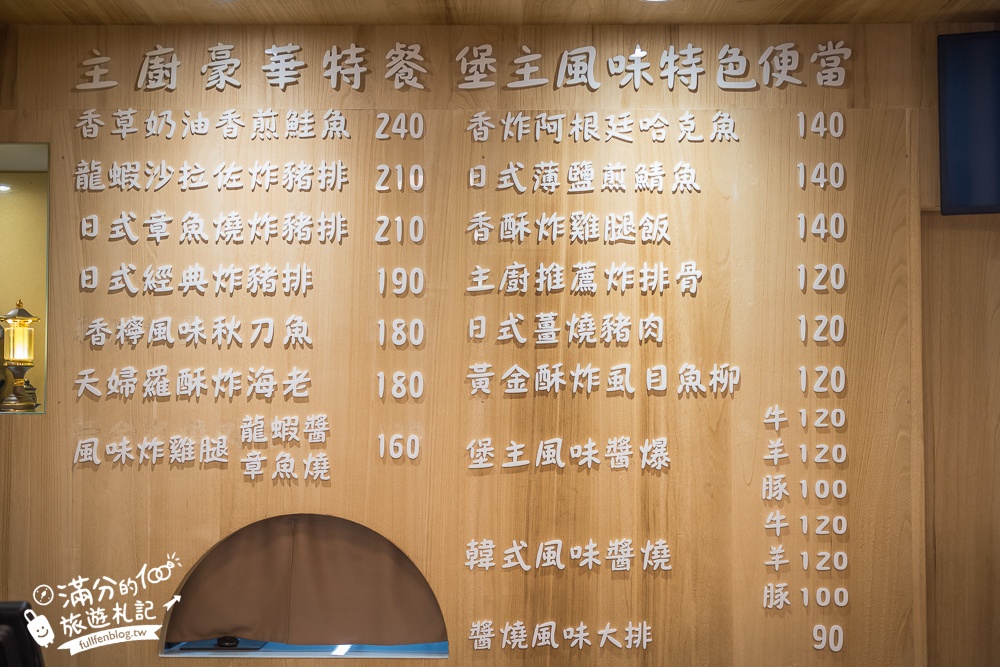 主廚豪華特餐
香草奶油香煎鮭魚 240
龍蝦沙拉佐炸豬排 210
日式章魚燒炸豬排 210
日式經典炸豬排 190
香檸風味秋刀魚 180
天婦羅酥炸海老 180
風味炸雞腿 龍蝦醬 章魚燒 160
堡主風味特色便當
香炸阿根廷哈克魚 140
日式薄鹽煎鯖魚 140
香酥炸雞腿飯 140
主廚推薦炸排骨 120
日式薑燒豬肉 120
黃金酥炸虱目魚柳 120
堡主風味醬爆
牛 120
羊 120
豚 100
韓式風味醬燒
牛 120
羊 120
豚 100
醬燒風味大排 90
滿分的
旅遊札記
fullfenblog.tw